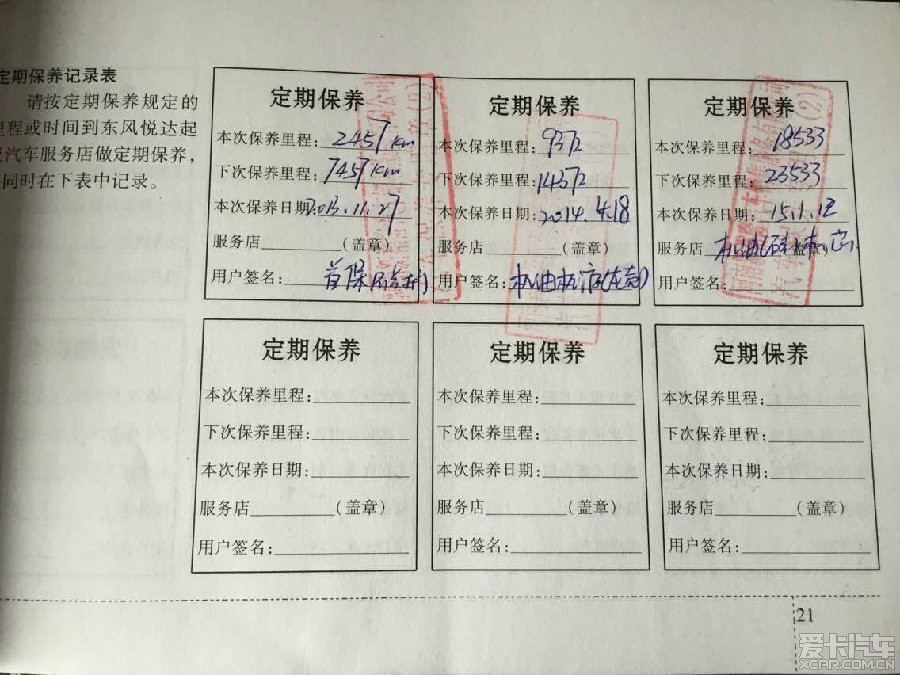 定期保养记录表
请按定期保养规定的
里程或时间到东风悦达起
亚汽车服务店做定期保养，
同时在下表中记录。
定期保养
本次保养里程：2457km
下次保养里程：7457km
本次保养日期：2013.11.27
服务店（盖章）
用户签名：首保
定期保养
本次保养里程：9372
下次保养里程：14372
本次保养日期：2014.4.18
服务店（盖章）
用户签名：机油机滤
定期保养
本次保养里程：18533
下次保养里程：23533
本次保养日期：15.1.12
服务店 机油
用户签名：
定期保养
本次保养里程：
下次保养里程：
本次保养日期：
服务店（盖章）
用户签名：
定期保养
本次保养里程：
下次保养里程：
本次保养日期：
服务店（盖章）
用户签名：
定期保养
本次保养里程：
下次保养里程：
本次保养日期：
服务店（盖章）
用户签名：
21
爱卡汽车
XCAR.COM.CN